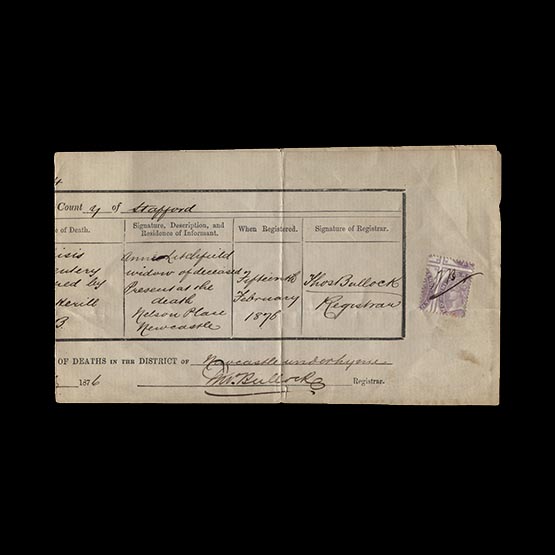 4
Count y of Stafford
e of Death.
Signature, Description, and Residence of Informant.
When Registered.
Signature of Registrar.
isis
entery
ed by
Anne Litchfield
widow of deceased
Present at the
death
Nelson Place
Newcastle
Fifteenth
February
1876
Thos Bullock
Registrar
B.
OF DEATHS IN THE DISTRICT OF Newcastle under lyme
1876
Thos Bullock Registrar.